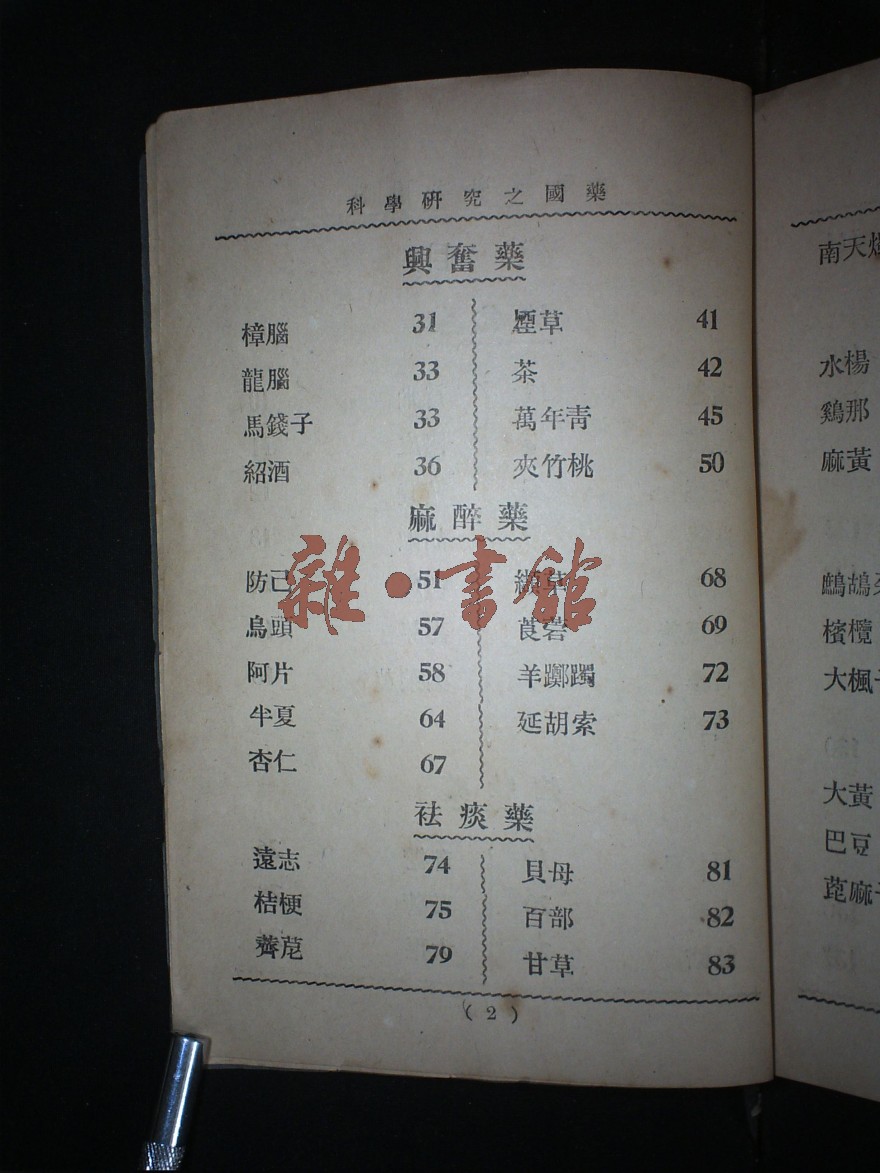 科學研究之國藥
興奮藥
樟腦 31
龍腦 33
馬錢子 33
紹酒 36
煙草 41
茶 42
萬年靑 45
夾竹桃 50
麻醉藥
防己 51
烏頭 57
阿片 58
半夏 64
杏仁 67
纈草 68
莨菪 69
羊躑躅 72
延胡索 73
祛痰藥
遠志 74
桔梗 75
薺苨 79
貝母 81
百部 82
甘草 83
(2)
雜·書館
南天燭
水楊
鷄那
麻黃
鷓鴣菜
檳欖
大楓子
大黃
巴豆
蓖麻子